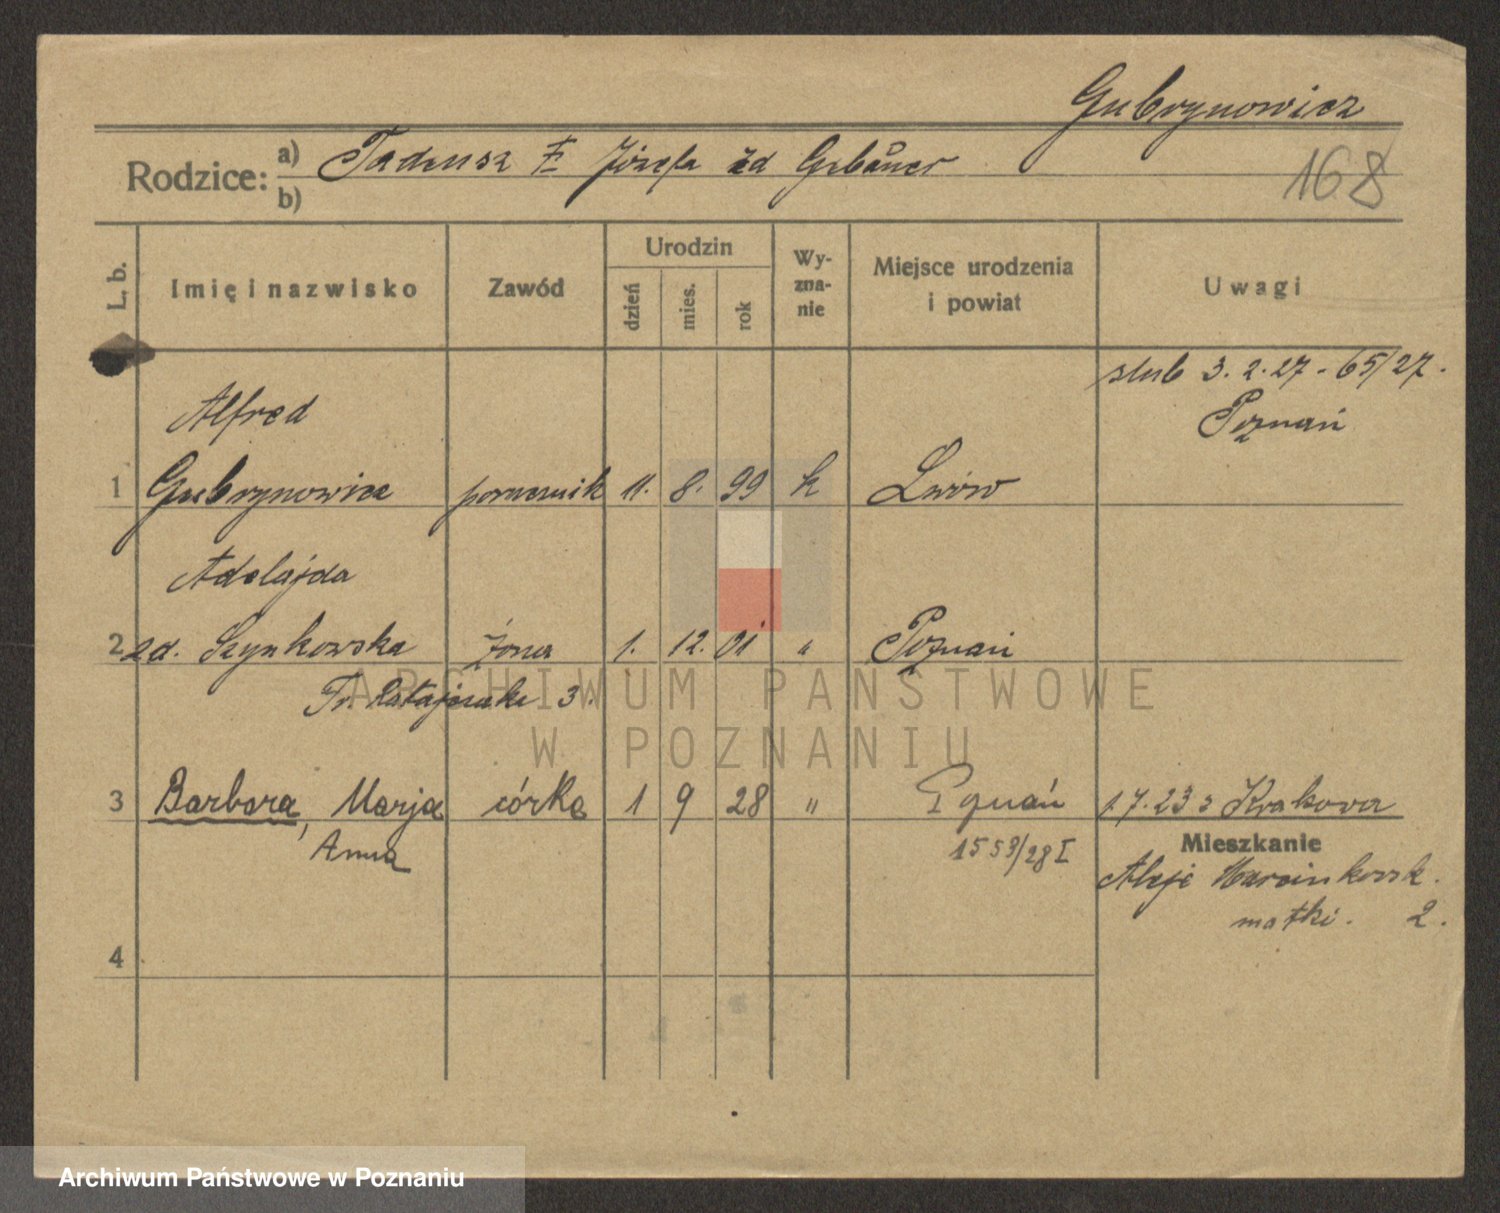 Gubrynowicz
Rodzice: a) Tadeusz Józefa zd Gebauer
b)
168
L. b.
Imię i nazwisko
Zawód
Urodzin
dzień
mies.
rok
Wy-
zna-
nie
Miejsce urodzenia
i powiat
Uwagi
slub 3.2.27 - 65/27.
Poznań
Alfred
1 Gubrynowicz porucznik 11. 8. 99 k Lwów
Adelajda
2 zd. Szynkowska żona 1. 12. 01 " Poznań
Fr. Ratajczaka 3.
3 Barbara, Marja córka 1 9 28 " Poznań 1.7.23 z Krakowa
Anna
1553/28 I
Mieszkanie
Aleje Marcinkowsk.
matki. 2.
4
ARCHIWUM PAŃSTWOWE
W POZNANIU
Archiwum Państwowe w Poznaniu